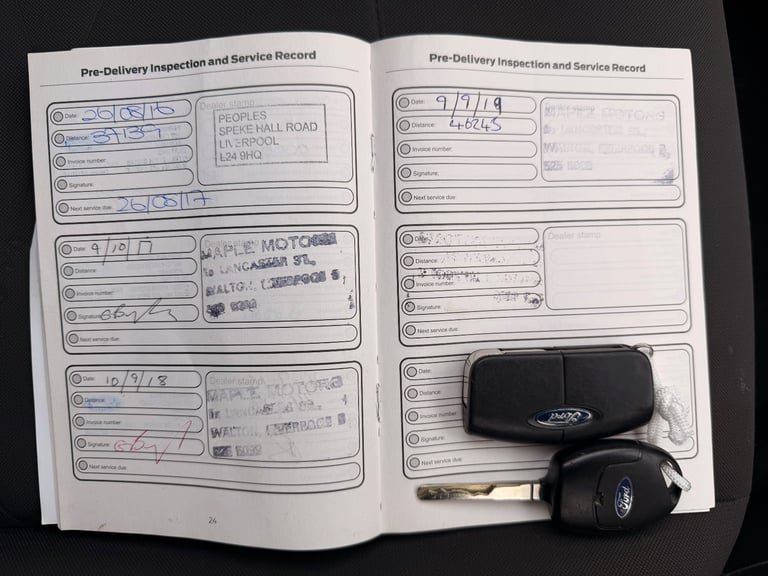 Pre-Delivery Inspection and Service Record
Date: 26/08/16
Distance: 37139
Invoice number:
Signature:
Next service due: 26/08/17
Dealer stamp
PEOPLES
SPEKE HALL ROAD
LIVERPOOL
L24 9HQ
Date: 9/10/17
Distance:
Invoice number:
Signature:
Next service due:
Dealer stamp
MAPLE MOTORS
LANCASTER ST,
WALTON,
Date: 10/9/18
Distance:
Invoice number:
Signature:
Next service due:
Dealer stamp
MAPLE MOTORS
WALTON,
24
Pre-Delivery Inspection and Service Record
Date: 9/9/19
Distance: 46245
Invoice number:
Signature:
Next service due:
MAPLE MOTORS
LANCASTER ST,
WALTON, LIVERPOOL
Date:
Distance:
Invoice number:
Signature:
Next service due:
Dealer stamp
Date:
Distance:
Invoice number:
Signature:
Next service due:
Ford
Ford